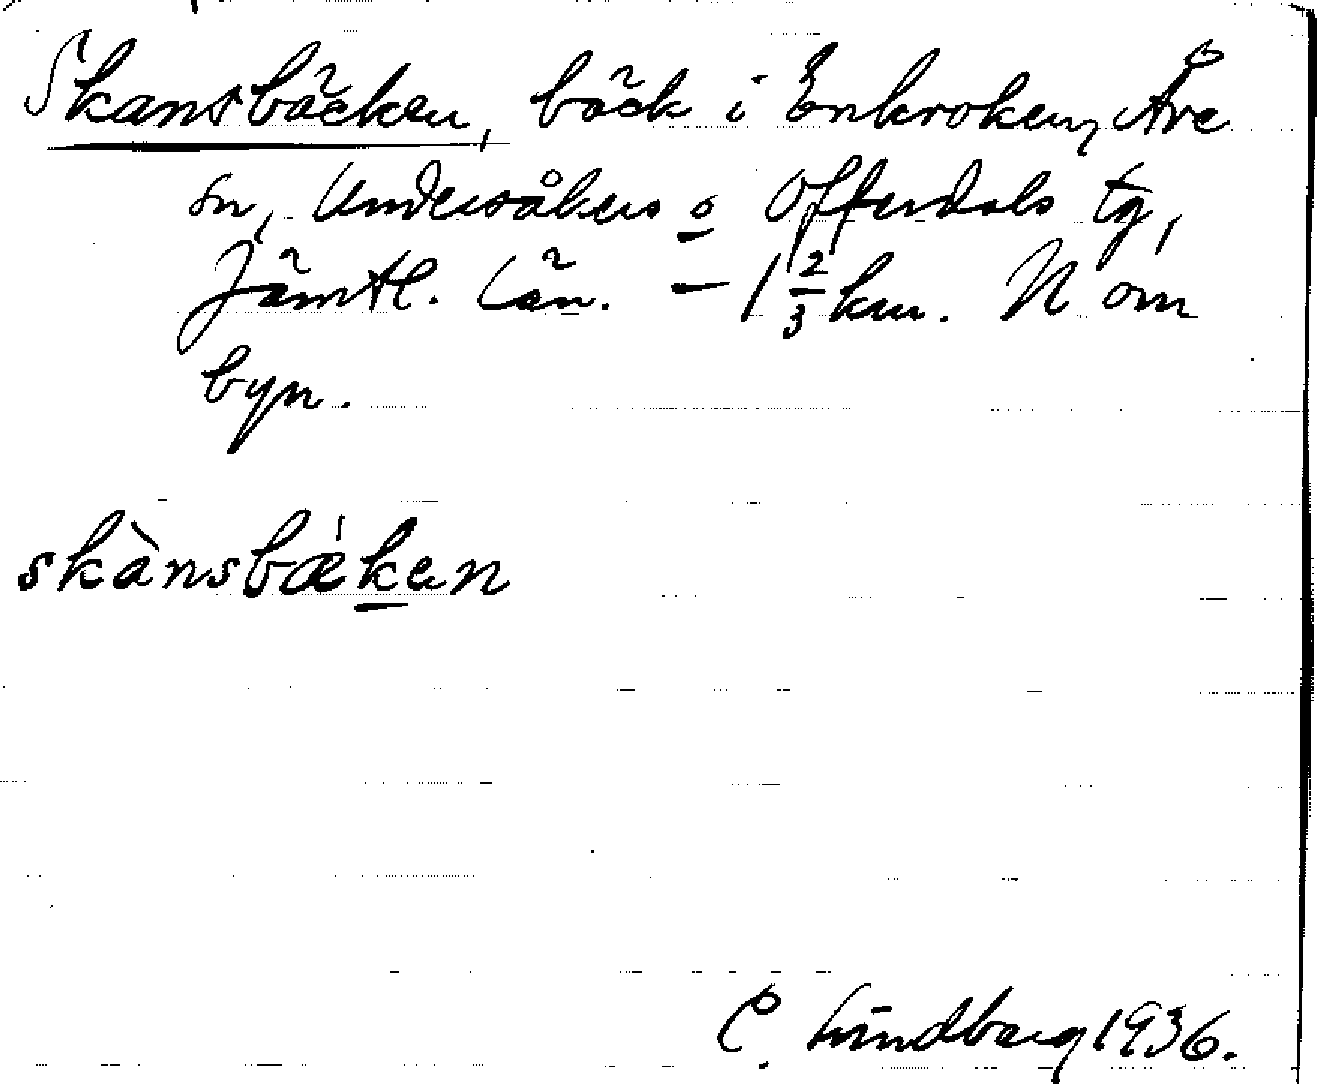 Skansbäcken, bäck i Enkroken, Åre
sn, Undersåkers o Offerdals tg,
Jämtl. län. – 1 2/3 km. N om
byn.
skànsbæ̀ken
C. Lindberg 1936.